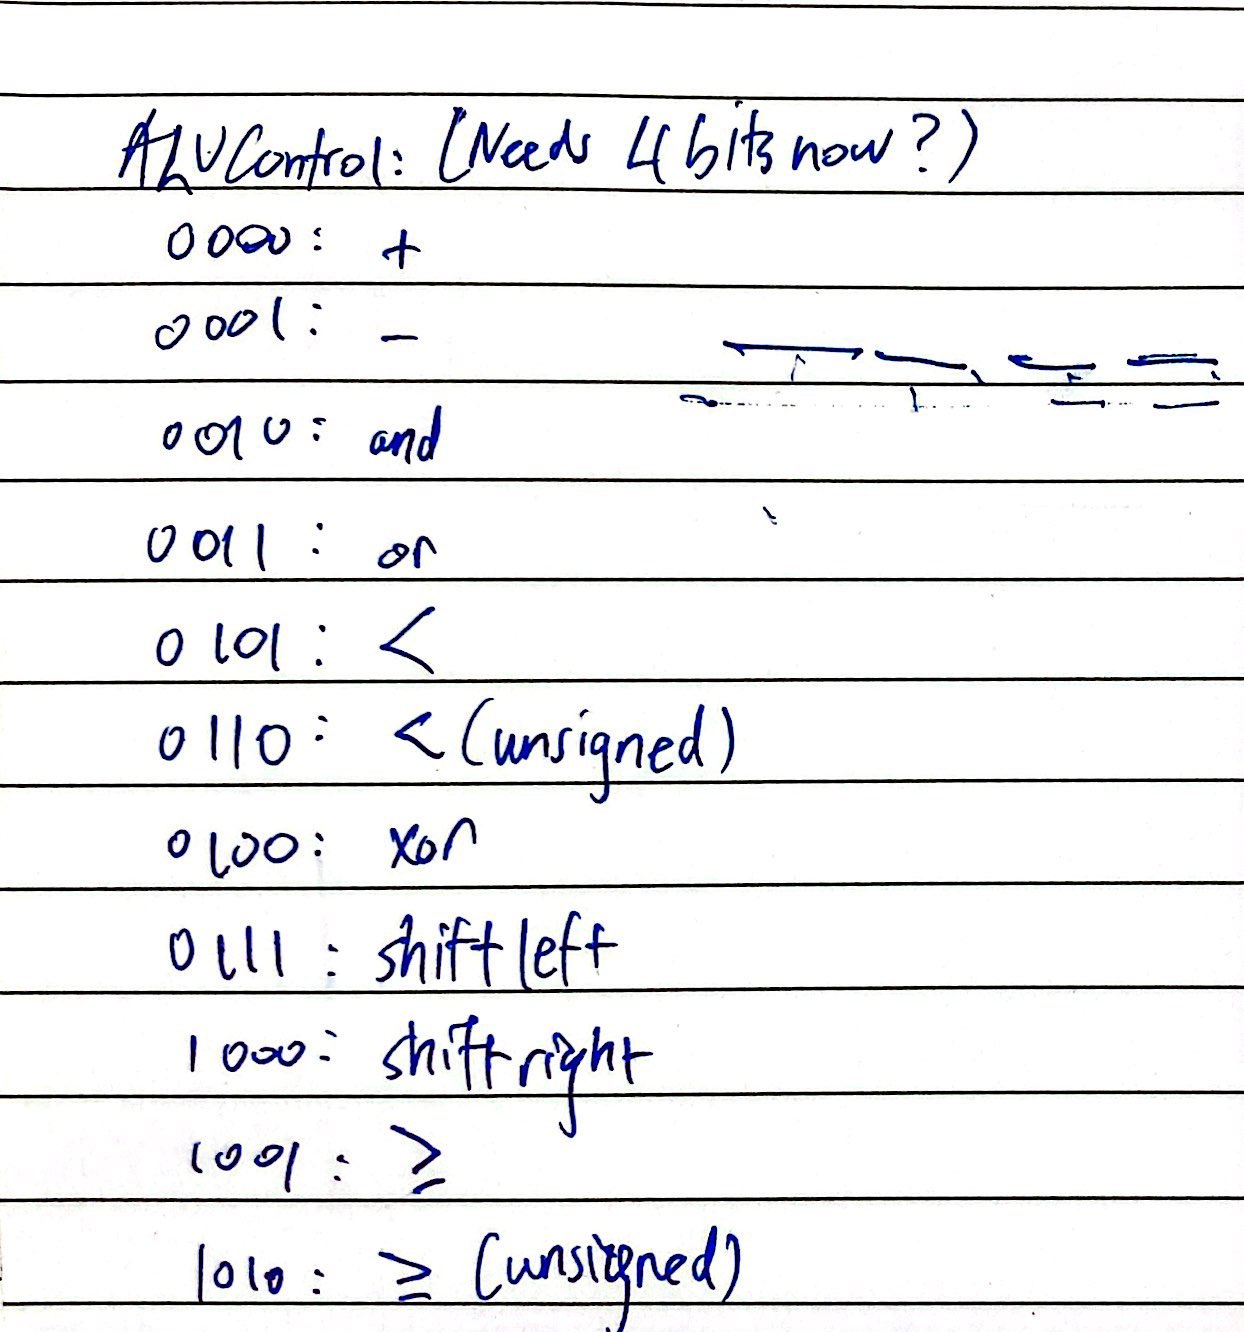 ALUControl: (Needs 4 bits now?)
0000: +
0001: -
0010: and
0011: or
0101: <
0110: < (unsigned)
0100: xor
0111: shift left
1000: shift right
1001: ≥
1010: ≥ (unsigned)